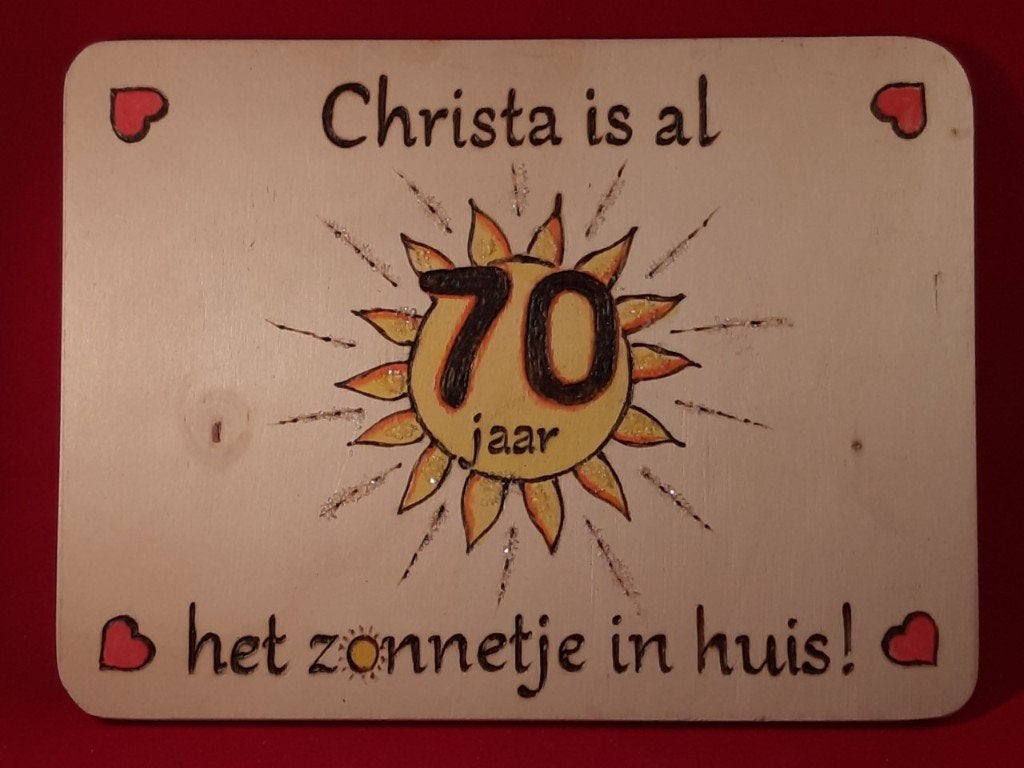 Christa is al
70
jaar
het zonnetje in huis!